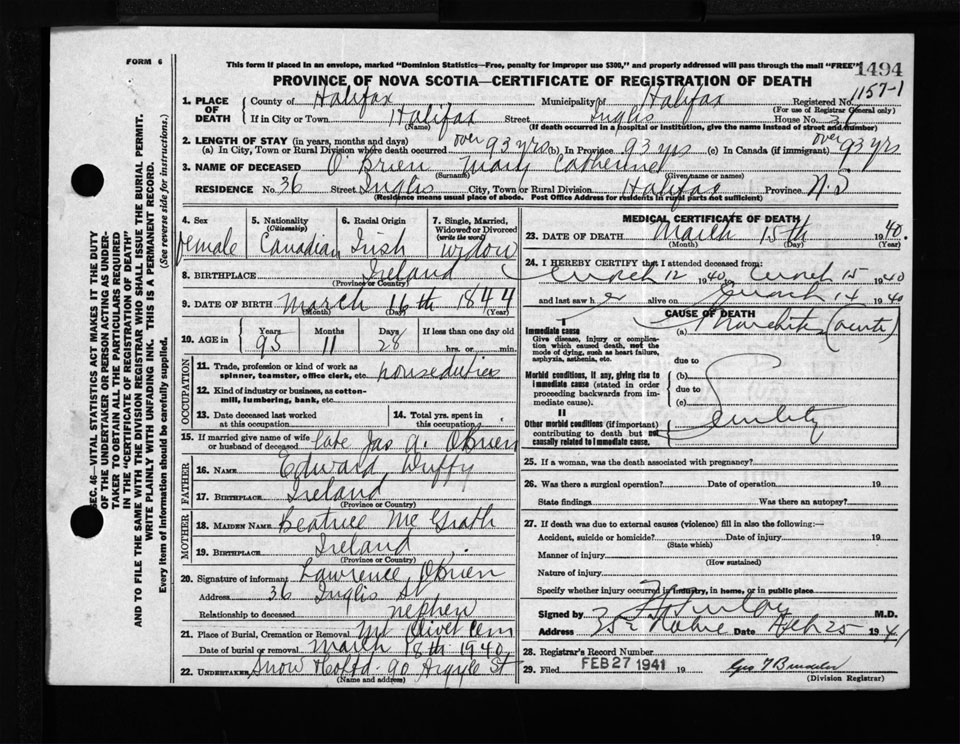 FORM 6
This form if placed in an envelope, marked "Dominion Statistics—Free, penalty for improper use $300," and properly addressed will pass through the mail "FREE"
1494
PROVINCE OF NOVA SCOTIA—CERTIFICATE OF REGISTRATION OF DEATH
1157-1
SEC. 46—VITAL STATISTICS ACT MAKES IT THE DUTY
OF THE UNDERTAKER OR PERSON ACTING AS UNDER-
TAKER TO OBTAIN ALL THE PARTICULARS REQUIRED
IN THE "CERTIFICATE OF REGISTRATION OF DEATH"
AND TO FILE THE SAME WITH THE DIVISION REGISTRAR WHO SHALL ISSUE THE BURIAL PERMIT.
WRITE PLAINLY WITH UNFADING INK. THIS IS A PERMANENT RECORD.
Every item of Information should be carefully supplied. (See reverse side for instructions.)
1. PLACE OF DEATH County of Halifax Municipality of Halifax Registered No.
(For use of Registrar General only)
If in City or Town Halifax Street Inglis House No. 36
(Name) (If death occurred in a hospital or institution, give the name instead of street and number)
2. LENGTH OF STAY (in years, months and days)
(a) In City, Town or Rural Division where death occurred over 93 yrs (b) In Province 93 yrs (c) In Canada (if immigrant) over 93 yrs
3. NAME OF DECEASED O'Brien Mary Catherine
(Surname) (Given name or names)
RESIDENCE No. 36 Street Inglis City, Town or Rural Division Halifax Province N.S
(Residence means usual place of abode. Post Office Address for residents in rural parts not sufficient)
4. Sex female
5. Nationality (Citizenship) Canadian
6. Racial Origin Irish
7. Single, Married, Widowed or Divorced (write the word) widow
8. BIRTHPLACE Ireland
(Province or Country)
9. DATE OF BIRTH March 16th 1844
(Month) (Day) (Year)
10. AGE in Years 95 Months 11 Days 28 If less than one day old
hrs. or min.
OCCUPATION
11. Trade, profession or kind of work as
spinner, teamster, office clerk, etc. houseduties
12. Kind of industry or business, as cotton-
mill, lumbering, bank, etc.
13. Date deceased last worked
at this occupation
14. Total yrs. spent in
this occupation
15. If married give name of wife
or husband of deceased late Jas A. O'Brien
FATHER
16. NAME Edward Duffy
17. BIRTHPLACE Ireland
(Province or Country)
MOTHER
18. MAIDEN NAME Beatrice Mc Grath
19. BIRTHPLACE Ireland
(Province or Country)
20. Signature of informant Lawrence O'Brien
Address 36 Inglis St
Relationship to deceased nephew
21. Place of Burial, Cremation or Removal Mt Olivet Cem
Date of burial or removal March 18th 1940
22. UNDERTAKER Snow & Co Ltd. 90 Argyle St
(Name and address)
MEDICAL CERTIFICATE OF DEATH
23. DATE OF DEATH March 15th 1940
(Month) (Day) (Year)
24. I HEREBY CERTIFY that I attended deceased from:
March 12 1940 March 15 1940
and last saw h er alive on March 14 1940
CAUSE OF DEATH
I
Immediate cause (a) Bronchitis (acute)
Give disease, injury or complica-
tion which caused death, not the
mode of dying, such as heart failure,
asphyxia, asthenia, etc.
due to
Morbid conditions, if any, giving rise to
immediate cause (stated in order
proceeding backwards from im-
mediate cause).
(b)
due to
(c)
II
Other morbid conditions (if important)
contributing to death but not
causally related to immediate cause.
Senility
25. If a woman, was the death associated with pregnancy?
26. Was there a surgical operation? Date of operation 19
State findings Was there an autopsy?
27. If death was due to external causes (violence) fill in also the following:—
Accident, suicide or homicide? Date of injury 19
(State which)
Manner of injury
(How sustained)
Nature of injury
Specify whether injury occurred in industry, in home, or in public place
Signed by M.D.
Address Date Feb 25 1941
28. Registrar's Record Number
29. Filed FEB 27 1941 19
(Division Registrar)